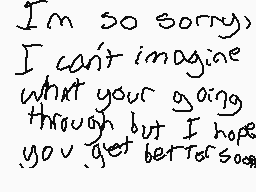 I'm so sorry,
I can't imagine
what your going
through but I hope
you get better soon